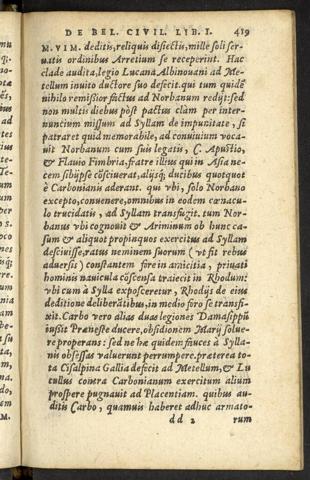 DE BEL. CIVIL. LIB. I. 419
M. VIM. deditis, reliquis disiectis, mille soli ser-
uatis ordinibus Arretium se receperint. Hac
clade audita, legio Lucana Albinouani ad Me-
tellum inuito ductore suo defecit. qui tum quidē
nihilo remissior factus ad Norbanum redijt: sed
non multis diebus pòst pactus clàm per inter-
nuncium missum ad Syllam de impunitate, si
patraret quid memorabile, ad conuiuium voca-
uit Norbanum cum suis legatis, C. Apustio,
& Flauio Fimbria, fratre illius qui in Asia ne-
cem sibijpse cōsciuerat, alijsq; ducibus quotquot
è Carbonianis aderant. qui vbi, solo Norbano
excepto, conuenere, omnibus in eodem cœnacu-
lo trucidatis, ad Syllam transfugit. tum Nor-
banus vbi cognouit & Ariminum ob hunc ca-
sum & aliquot propinquos exercitus ad Syllam
desciuisse, ratus neminem suorum (vt fit rebus
aduersis) constantem fore in amicitia, priuati
hominis nauicula cōscensa traiecit in Rhodum:
vbi cum à Sylla exposceretur, Rhodijs de eius
deditione deliberātibus, in medio foro se transfi-
xit. Carbo vero alias duas legiones Damasippū
iussit Præneste ducere, obsidionem Marij solue-
re properans: sed ne hæ quidem fauces à Sylla-
nis obsessas valuerunt perrumpere. præterea to-
ta Cisalpina Gallia defecit ad Metellum, & Lu
cullus contra Carbonianum exercitum alium
prospere pugnauit ad Placentiam. quibus au-
ditis Carbo, quamuis haberet adhuc armato-
dd 2 rum